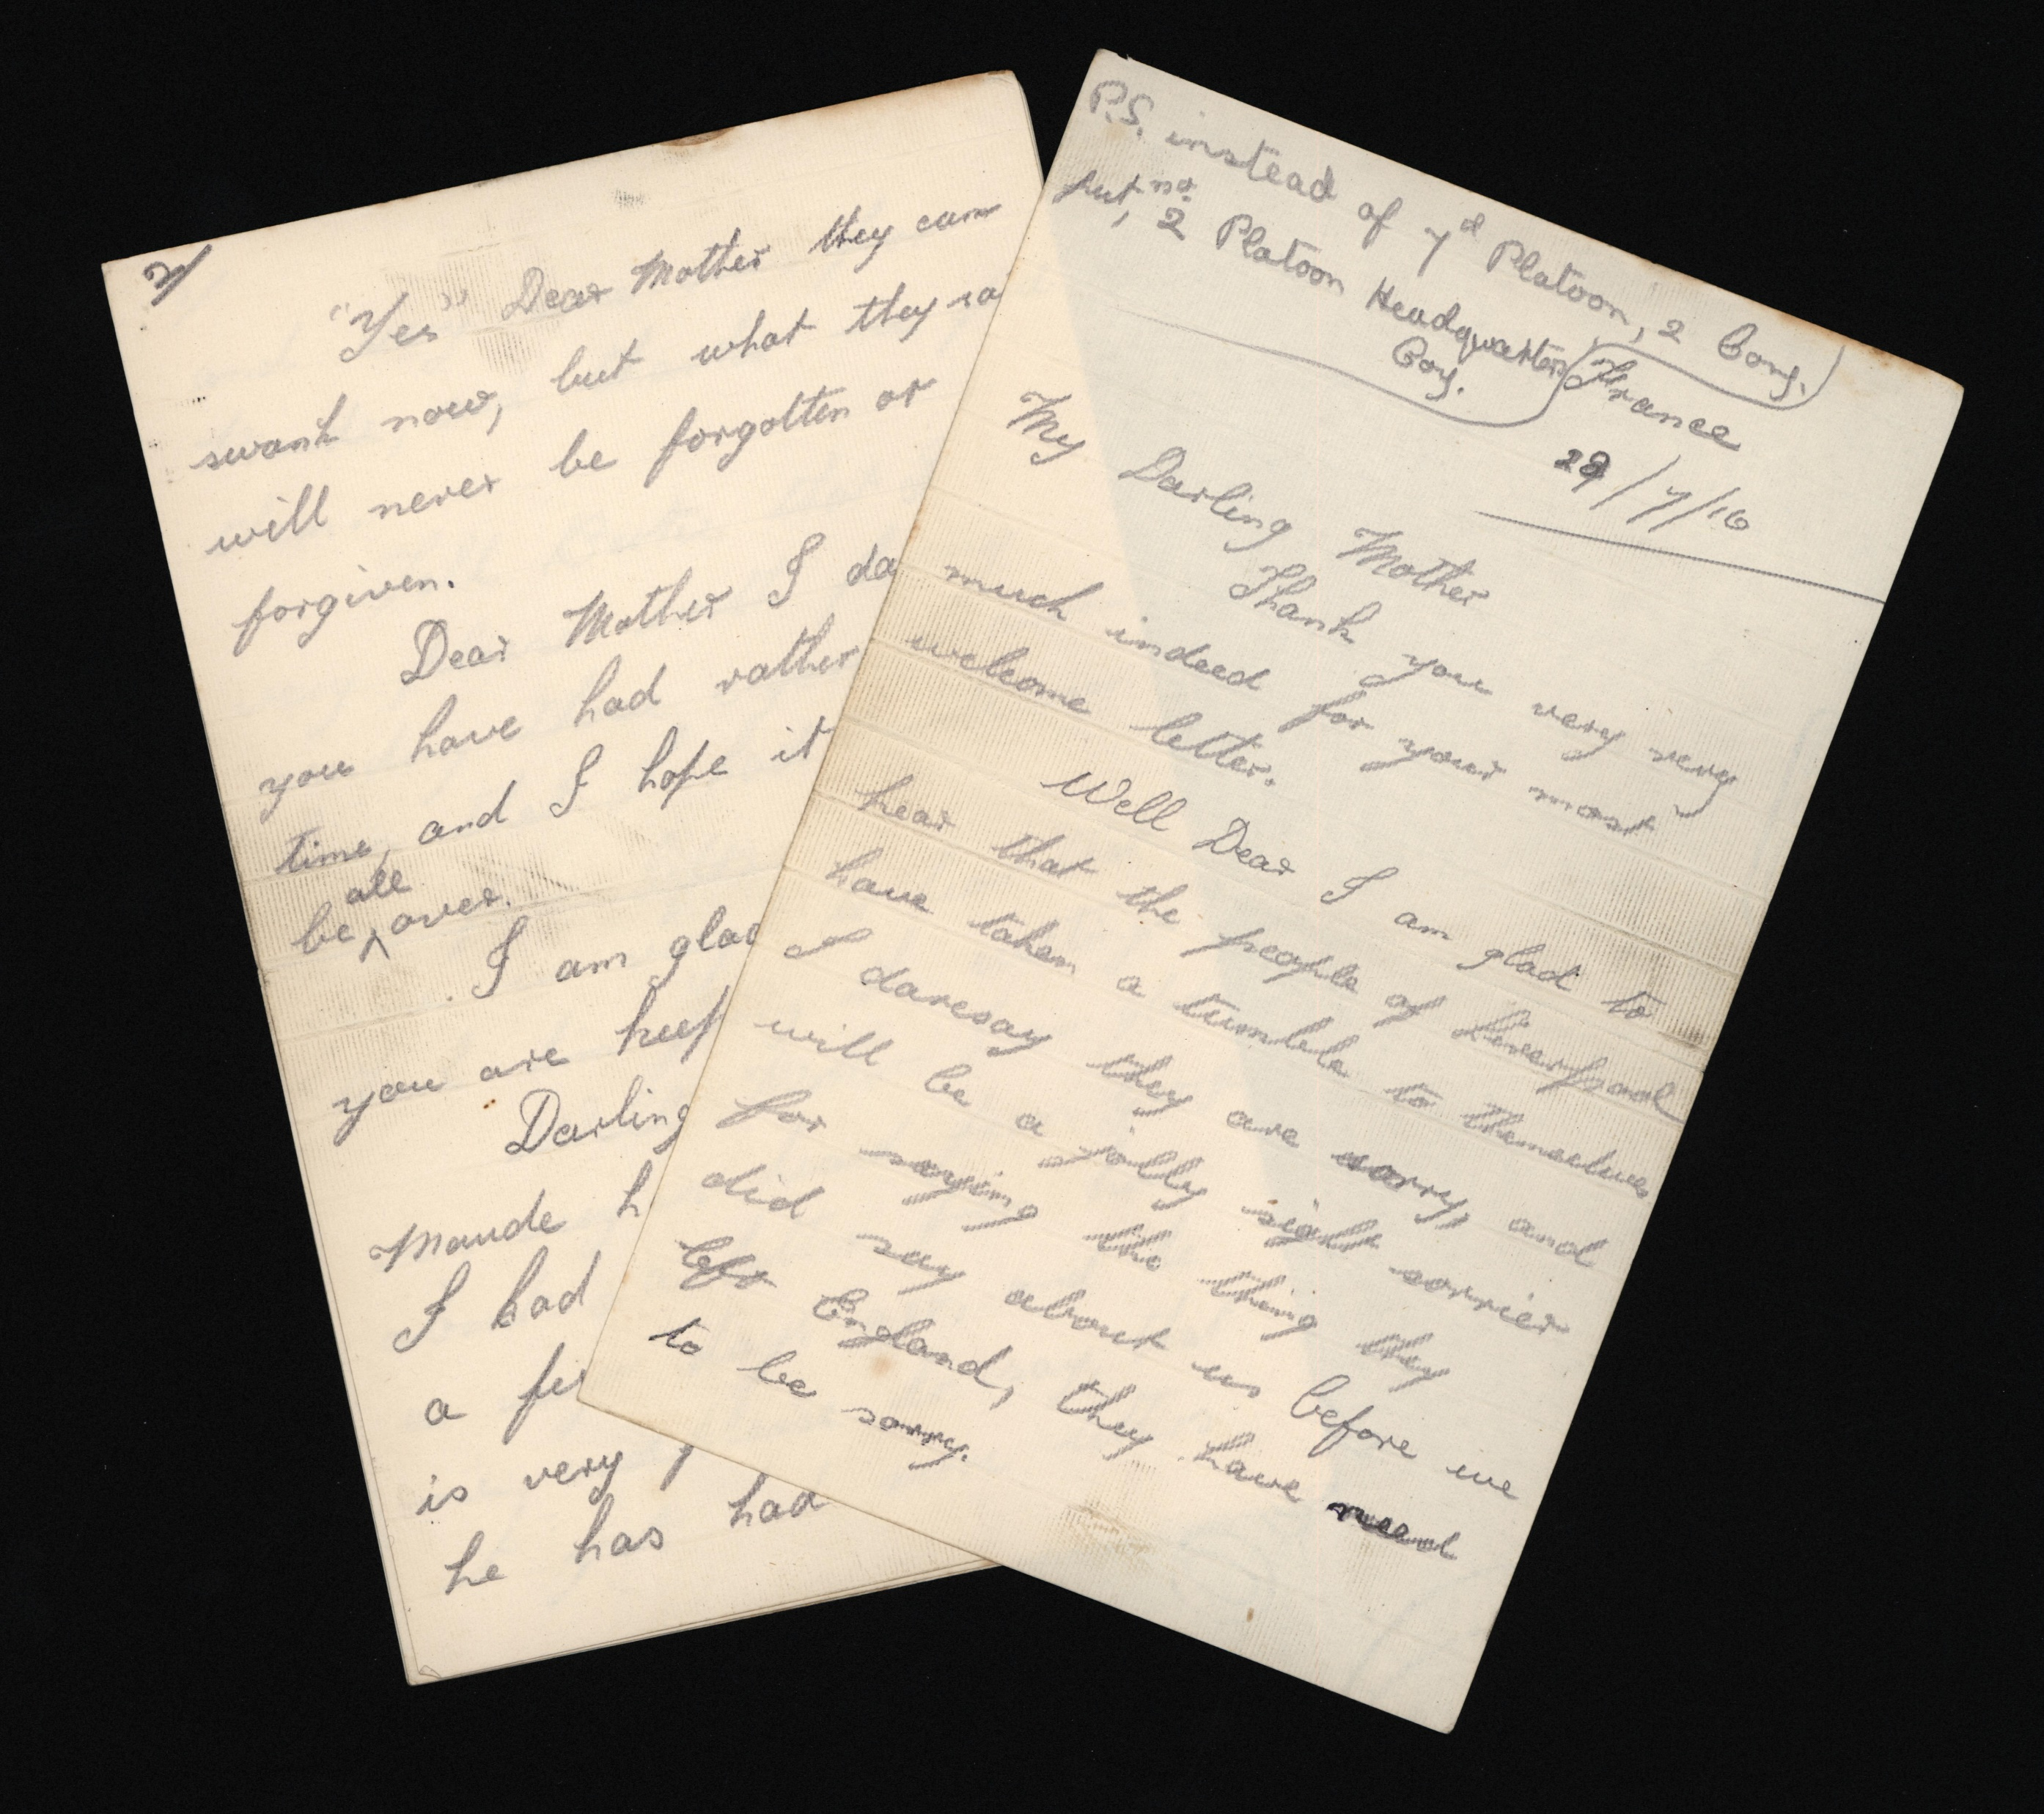 P.S. instead of 7d Platoon, 2 Coy.
put, no. 2 Platoon Headquarters
Coy.
France
29/7/16
My Darling Mother
Thank you very very
much indeed for your most
welcome letter.
Well Dear I am glad to
hear that the people of Liverpool
have taken a tumble to themselves
I daresay they are sorry, and
will be a jolly sight sorrier
for saying the thing they
did say about us before we
left England, they have need
to be sorry.
2/
"Yes" Dear Mother they can
swank now, but what they sa
will never be forgotten or
forgiven.
Dear Mother I da
you have had rather
time, and I hope it
be all over.
I am glad
you are keep
Darling
Maude h
I had
a fe
is very
he has had